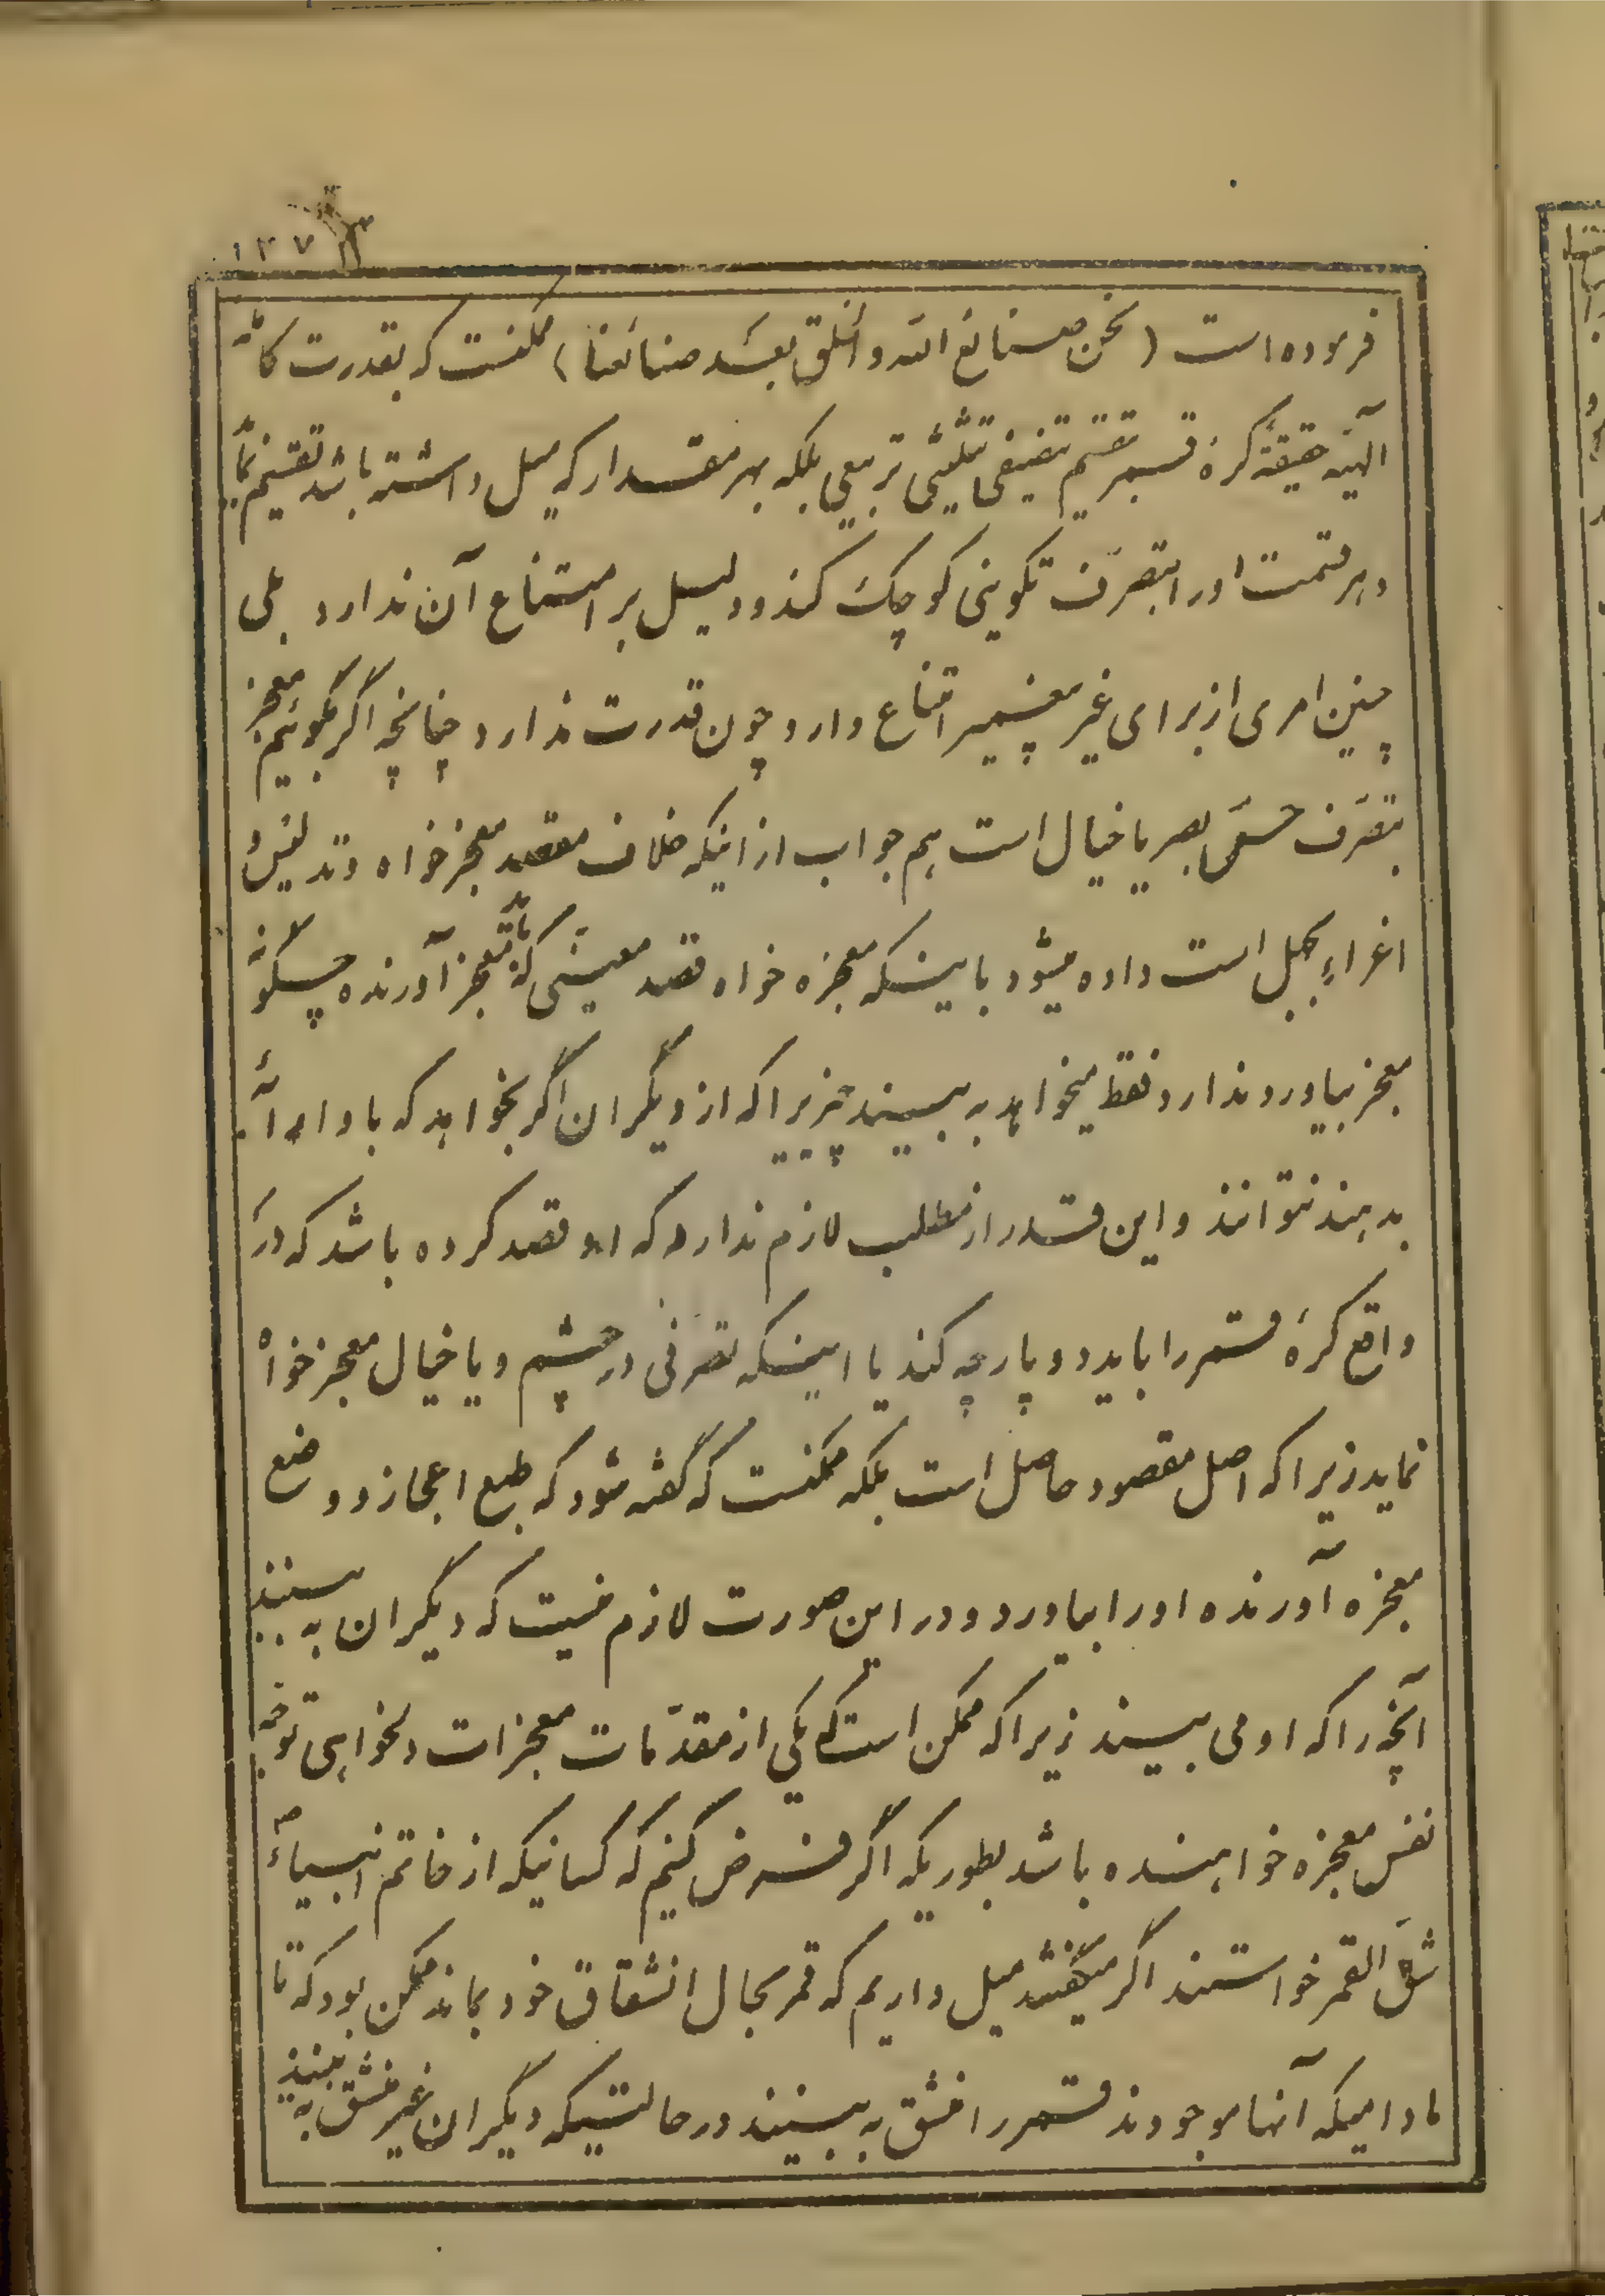 ۱۲۷
فرموده است (نحن صنائع الله و الخلق بعد صنائعنا) ممکنست که بقدرت کامله
الهیه حقیقةً کرهٔ قمر تقسیم تنصیفی تثلیثی تربیعی بلکه بهر مقدار که میل داشته باشد تقسیم نماید
و هر قسمت او را بتصرف تکوینی کوچک کند و دلیل بر امتناع آن ندارد بلی
چنین امری از برای غیر پیغمبر امتناع دارد چون قدرت ندارد چنانچه اگر بگوئیم معجز
بتصرف حسّ بصر یا خیال است هم جواب از اینکه خلاف مقصد معجز خواه و تدلیس و
اغراء بجهل است داده میشود باینکه معجزه خواه قصد معینی که معجز آورنده چگونه
معجز بیاورد ندارد فقط میخواهد به بیند چیزیرا که از دیگران اگر بخواهد که باو ارائه
بدهند نتوانند و این قدر از مطلب لازم ندارد که او قصد کرده باشد که در
واقع کرهٔ قمر را باید دو پارچه کند یا اینکه تصرفی در چشم و یا خیال معجز خواه
نماید زیرا که اصل مقصود حاصل است بلکه ممکنست که گفته شود که طبع اعجاز و وضع
معجزه آورنده او را بیاورد و در این صورت لازم نیست که دیگران به بینند
آنچه را که او می بیند زیرا که ممکن است که یکی از مقدمات معجزات دلخواهی توجه
نفس معجزه خواهنده باشد بطوریکه اگر فرض کنیم که کسانیکه از خاتم انبیاء ص
شق القمر خواستند اگر میگفتند میل داریم که قمر بحال انشقاق خود بماند ممکن بود که تا
مادامیکه آنها موجودند قمر را منشق به بینند در حالتیکه دیگران غیر منشق به بینند